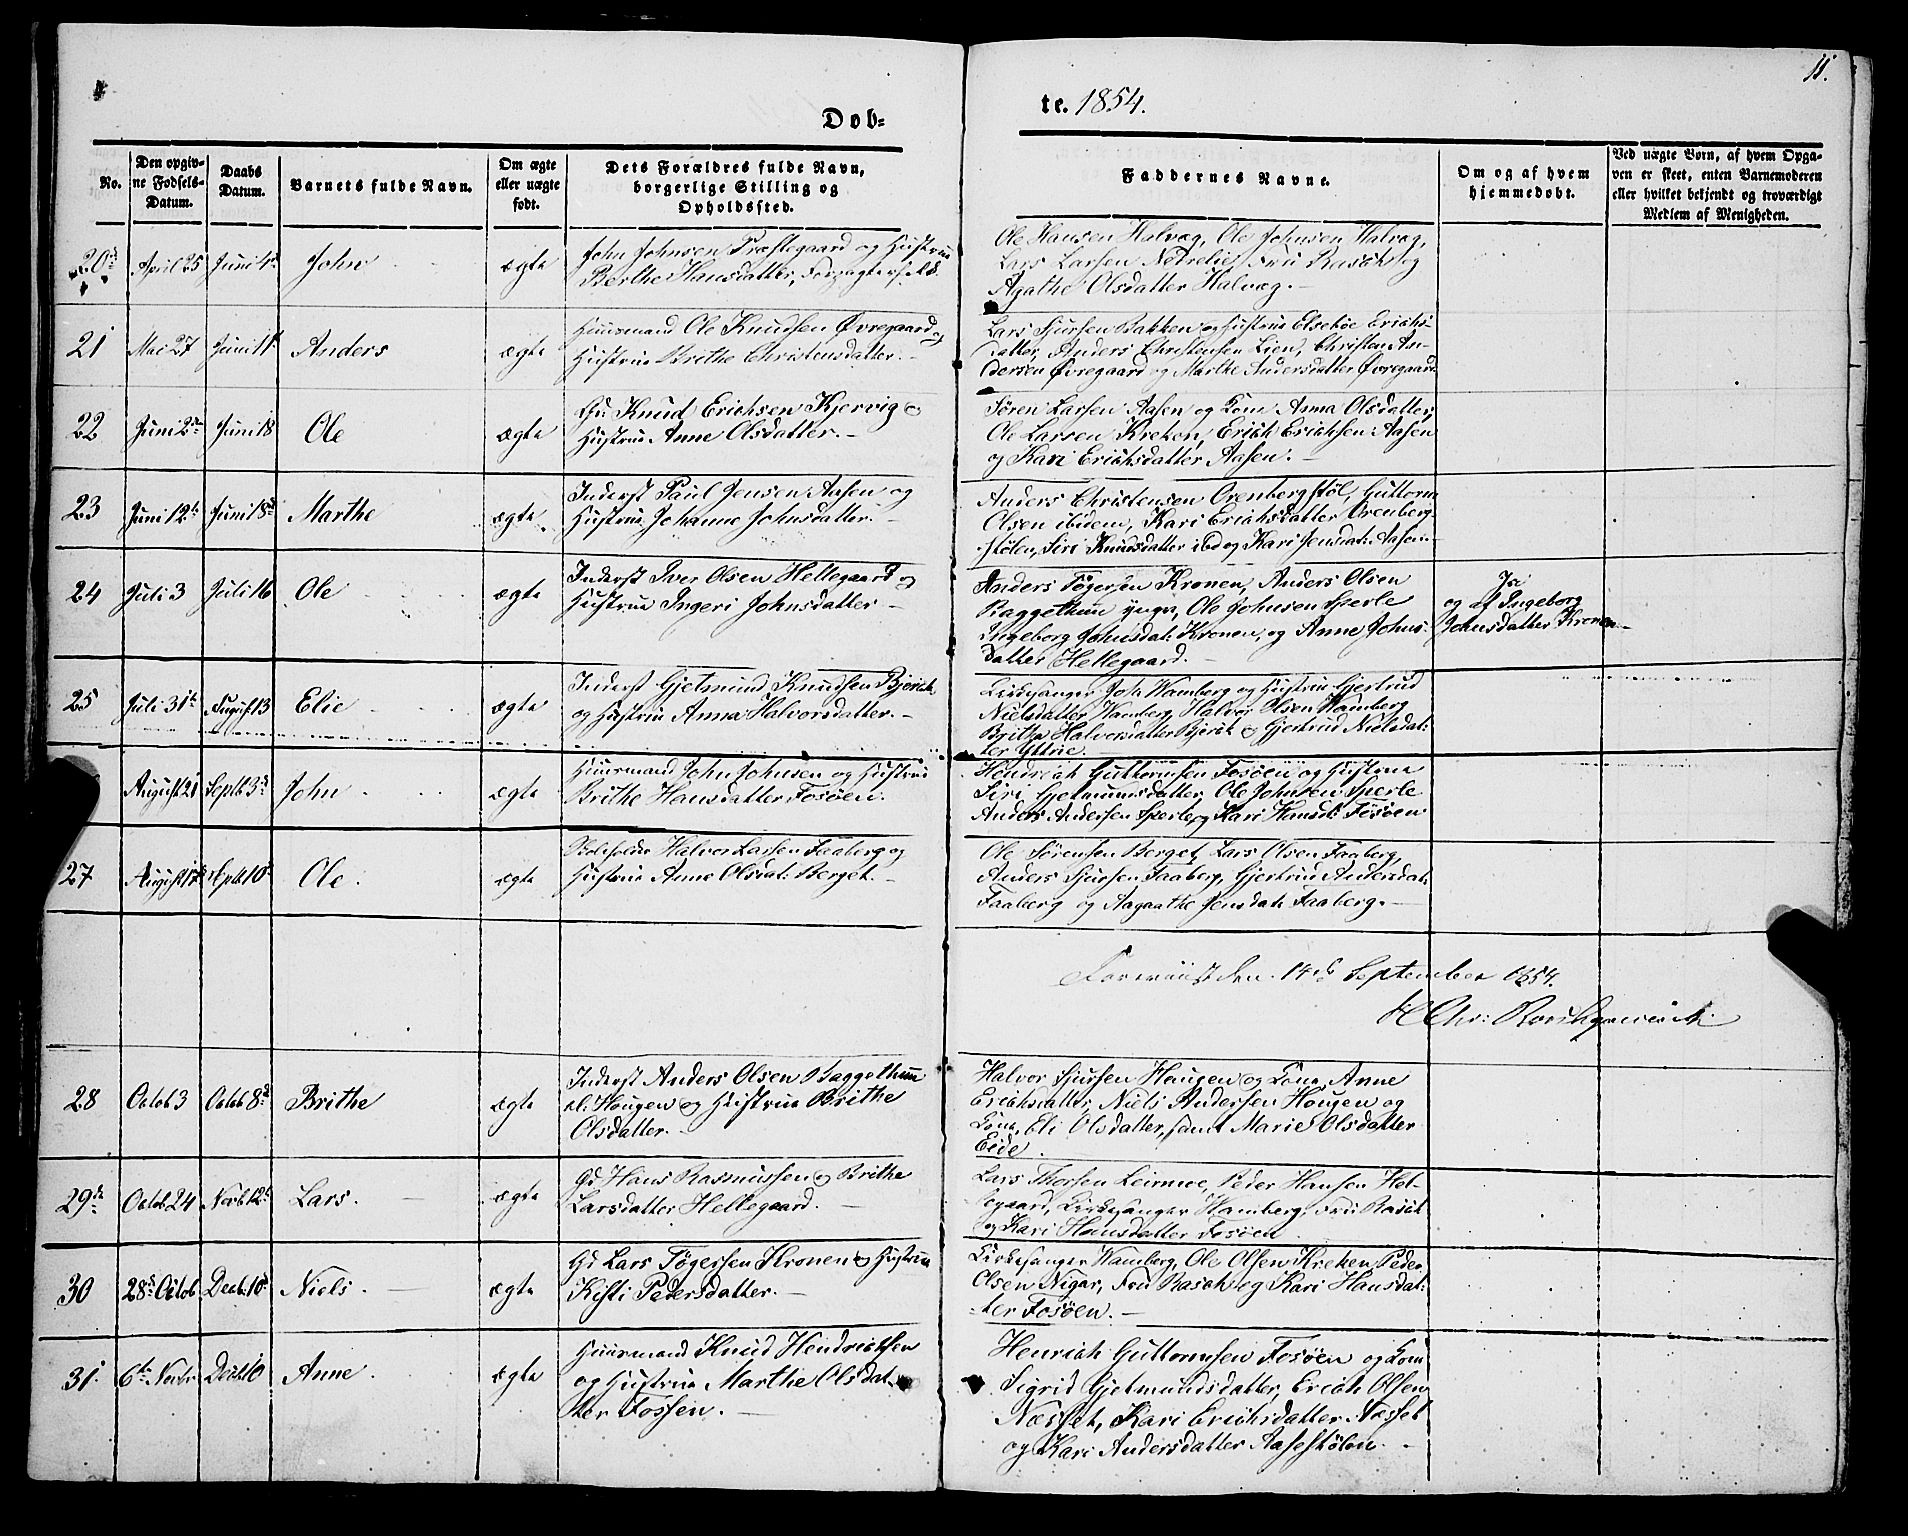 11.
Døb=
te. 1854.
No.
Den opgiv-
ne Fødsels-
Datum.
Daabs
Datum.
Barnets fulde Navn.
Om ægte
eller uægte
født.
Dets Forældres fulde Navn,
borgerlige Stilling og
Opholdssted.
Faddernes Navne.
Om og af hvem
hjemmedøbt.
Ved uægte Børn, af hvem Opga-
ven er skeet, enten Barnemoderen
eller hvilket bekjendt og troværdigt
Medlem af Menigheden.
20de April 25 Juni 4de John ægte
John Johnsen Præstegaard og Hustrue
Berthe Hansdatter,
Ole Hansen Halvæg, Ole Johnsen Halvæg,
Lars Larsen Nedrelie, Fru Rasch og
Agathe Olsdatter Halvæg.
21 Mai 27 Juni 11 Anders ægte
Huusmand Ole Knudsen Øvregaard og
Hustrue Brithe Christensdatter.
Lars Sjursen Bakken og Hustrue Elsebøe Erichs-
datter, Anders Christensen Lien, Christen An-
dersen Øvregaard og Marthe Andersdatter Øvregaard
22 Juni 2den Juni 18 Ole ægte
Gu Knud Erichsen Kjervig og
Hustrue Anne Olsdatter.
Søren Larsen Aasen og Kone Anna Olsdatter,
Ole Larsen Kreken, Erich Erichsen Aasen
og Kari Erichsdatter Aasen.
23 Juni 12te Juni 18de Marthe ægte
Inderst Paul Jensen Aasen og
Hustrue Johanne Johnsdatter.
Anders Christensen Orenbergstøl, Guttorm
Olsen ibidem, Kari Erichsdatter Orenberg-
støl_en, Siri Knudsdatter ibd og Kari Jensdat: Aasen.
24 Juli 3 Juli 16 Ole ægte
Inderst Iver Olsen Hellegaard og
Hustrue Ingeri Johnsdatter
Anders Tøgersen Kronen, Anders Olsen
Baggethun yngr, Ole Johnsen Sperle
Ingeborg Johnsdat: Kronen, og Anne Johns-
datter Hellegaard.
Ja
og af Ingeborg
Johnsdatter Kronen
25 Juli 31te August 13 Elie ægte
Inderst Gjetmund Knudsen Bjerch
og Hustrue Anna Halvorsdatter.
Kirkesanger Joh Wamberg og Hustrue Gjertrud
Nielsdatter Wamberg, Halvor Olsen Wamberg
Brithe Halvorsdatter Bjerch og Gjertrud Nielsdat-
ter Yttrie.
August 21 Septb 3de John ægte
Huusmand John Johnsen og Hustrue
Brithe Hansdatter Fosøen.
Hendrich Guttormsen Fosøen og Hustrue
Siri Gjetmundsdatter, Ole Johnsen Sperle
Anders Andersen Sperle og Kari Hansd: Fosøen
27 August Septb 10de Ole. ægte
Skoleholder Halvor Larsen Faaberg og
Hustrue Anne Olsdat: Berget.
Ole Sørensen Berget, Lars Olsen Faaberg,
Anders Sjursen Faaberg, Gjertrud Andersdat:
Faaberg og Aagaathe Jensdat: Faaberg.
Forevist den 14de September 1854.
28 Octob 3 Octob 8de Brithe ægte
Inderst Anders Olsen Baggethun
al: Hougen og Hustrue Brithe
Olsdatter.
Halvor Sjursen Haugen og Kone Anne
Erichsdatter, Niels Andersen Hougen og
Kone, Eli Olsdatter, samt Marie Olsdatter
Eide.
29de Octob 24 Novb 12te Lars. ægte
Gd Hans Rasmussen og Brithe
Larsdatter Hellegaard.
Lars Thorsen Leirmoe, Peder Hansen Hel-
legaard, Kirkesanger Wamberg, Fru Rasch
og Kari Hansdatter Fosøen
30 28de Octob Decb. 10de Niels. ægte
Gd Lars Tøgersen Kronen og Hustrue
Kisti Pedersdatter.
Kirkesanger Wamberg, Ole Olsen Kreken, Peder
Olsen Nigar, Fru Rasch og Kari Hansdat-
ter Fosøen.
31. 6te Novbr Decb 10 Anne ægte
Huusmand Knud Hendrichsen
og Hustrue Marthe Olsdat-
ter Fossen.
Henrich Guttormsen Fosøen og Kone
Sigrid Gjetmundsdatter, Erich Olsen
Næsset, Kari Erichsdatter Næsset
og Kari Andersdatter Aasestølen.